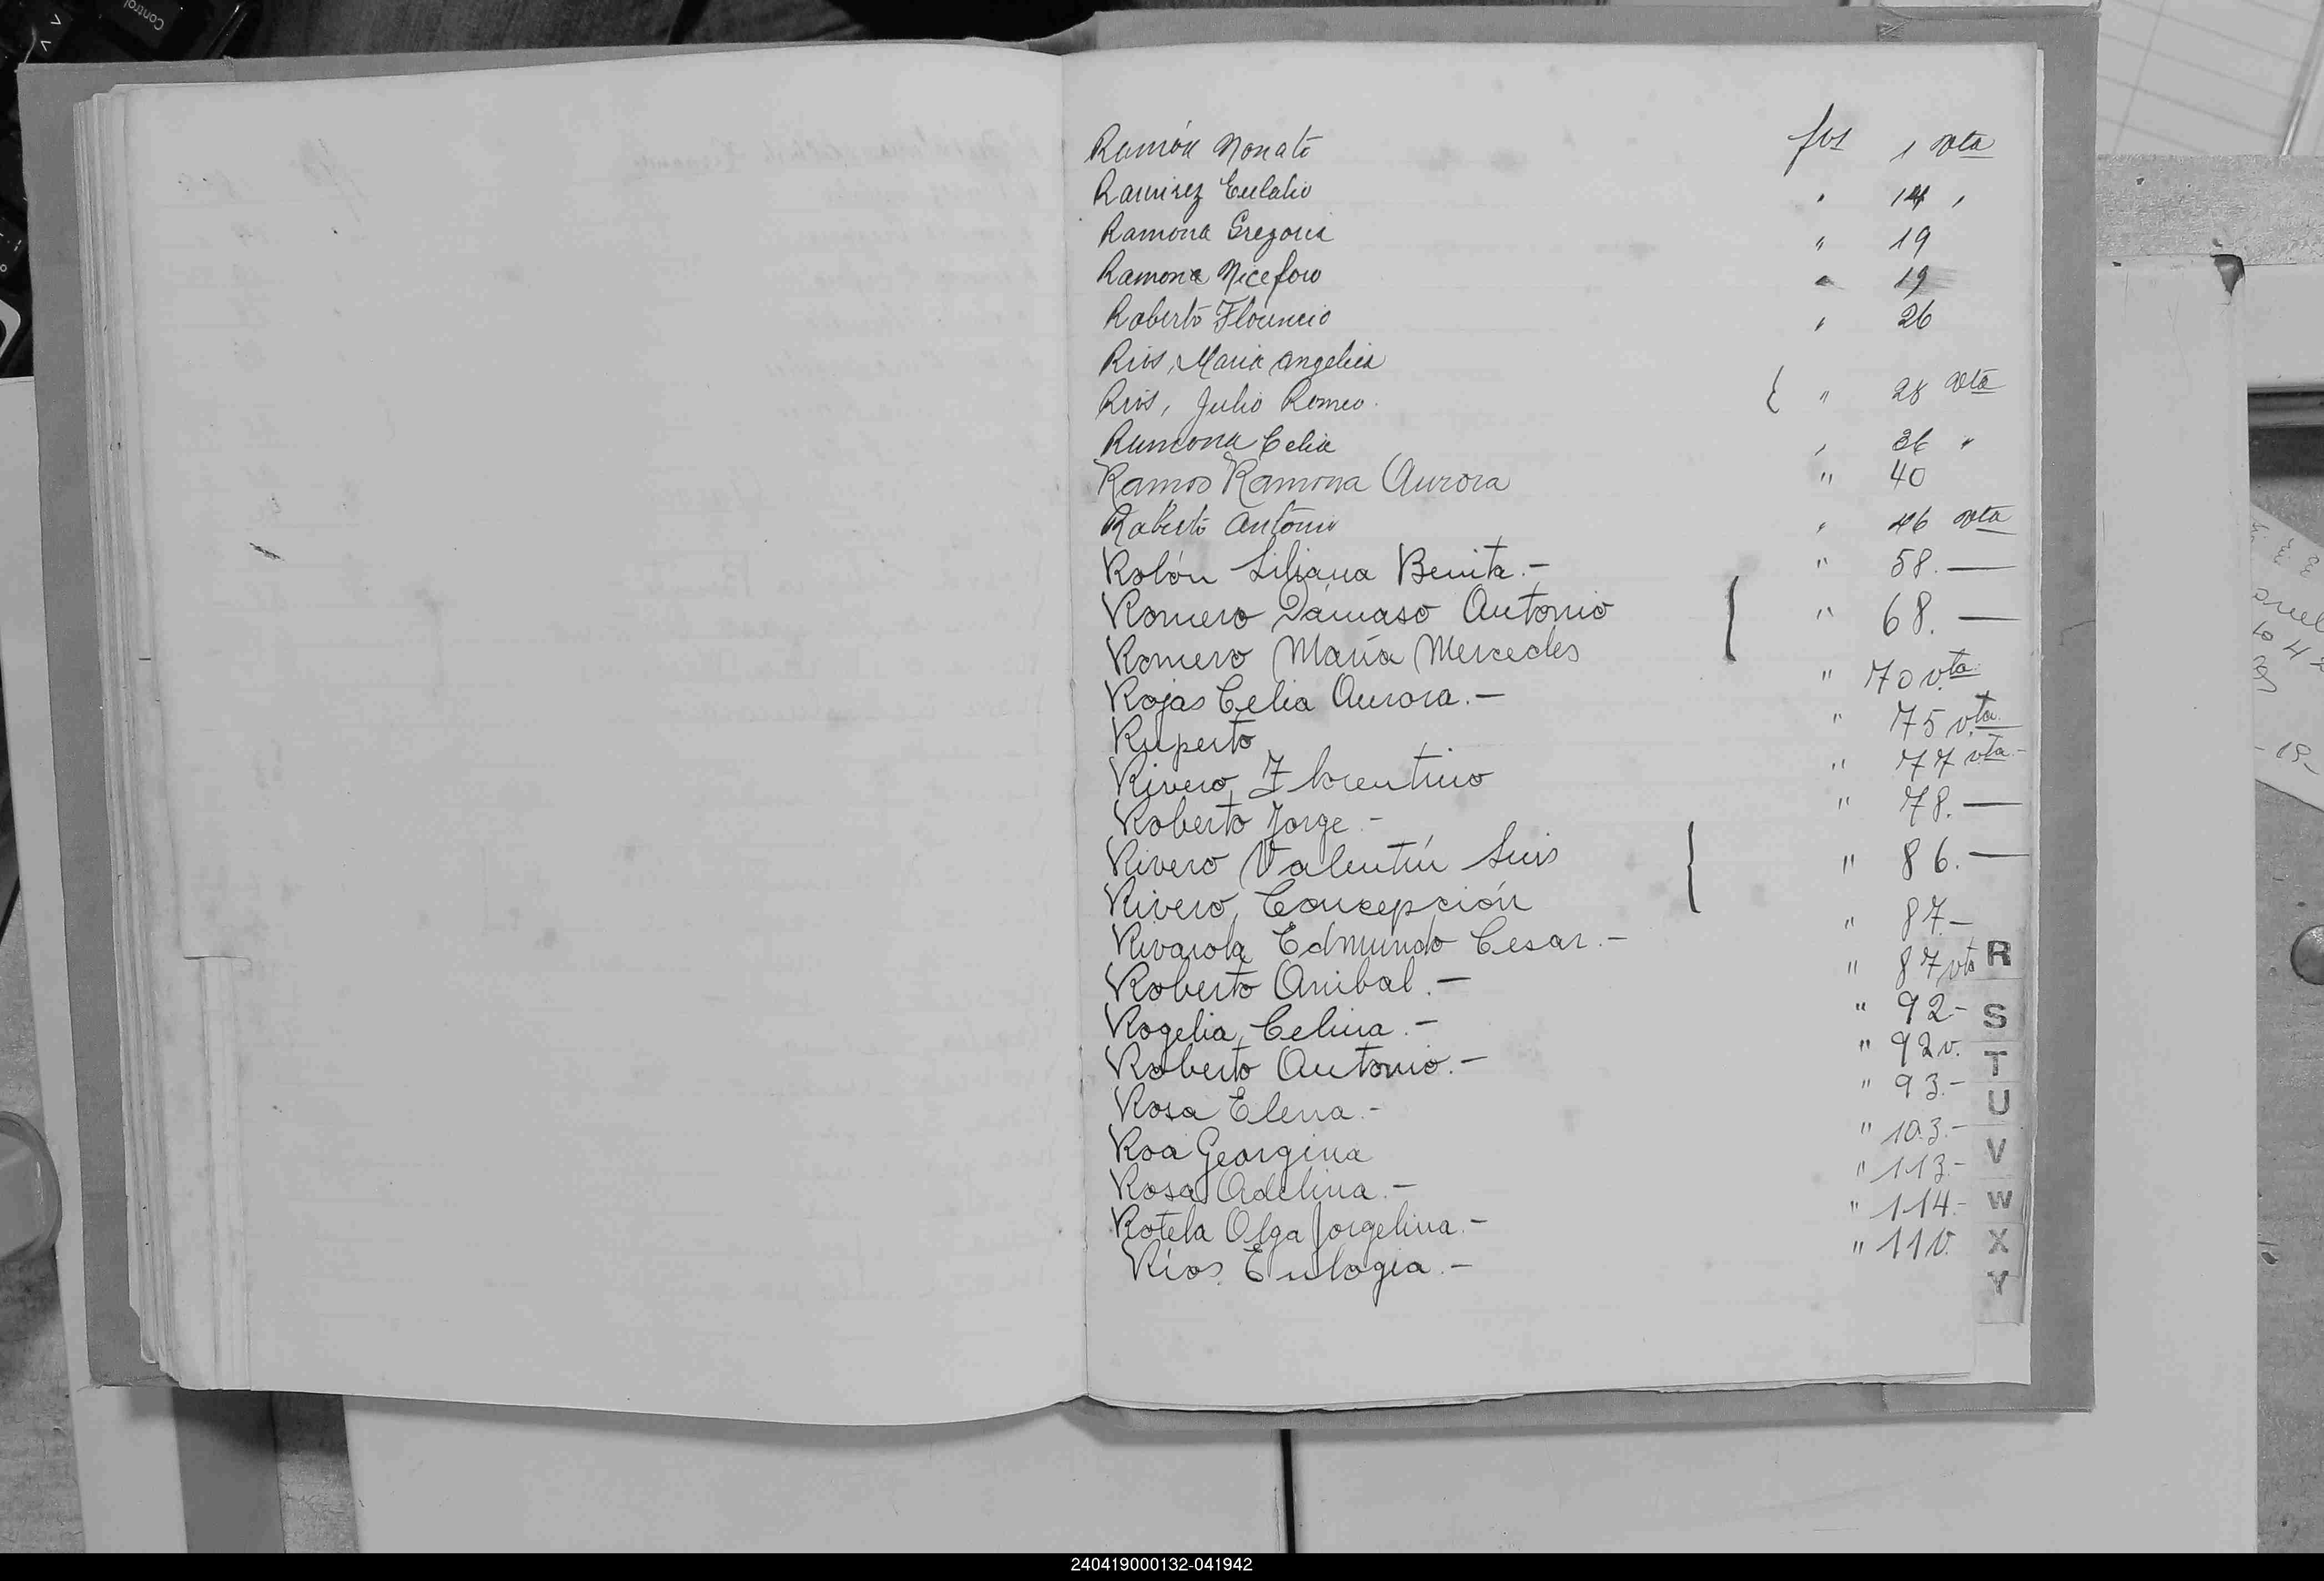 Ramón Nonato fvs 1 vta
Ramirez Eulalio " 14 "
Ramona Gregoria " 19
Ramona Niceforo " 19
Roberto Florencio " 26
Rios, Maria Angelica
Rios, Julio Romeo. { " 28 vta
Ramona Celia " 36 "
Ramos Ramona Aurora " 40
Roberto Antonio " 46 vta
Rolón Liliana Benita.- " 58.—
Romero Dámaso Antonio { " 68.—
Romero María Mercedes
Rojas Celia Aurora.- " 70 vta
Ruperto " 75 vta.
Rivero, Florentino " 77 vta.-
Roberto Jorge.- " 78.—
Rivero Valentín Luis { " 86.—
Rivero, Concepción
Rivarola Edmundo Cesar.- " 87.-
Roberto Anibal.- " 87 vta
Rogelia, Celina.- " 92-
Roberto Antonio.- " 92v.
Rosa Elena.- " 93.-
Roa Georgina " 103.-
Rosa Adelina.- " 113.-
Rotela Olga Jorgelina.- " 114.-
Ríos Eulogia.- " 11v.
R
S
T
U
V
W
X
Y
Control
240419000132-041942